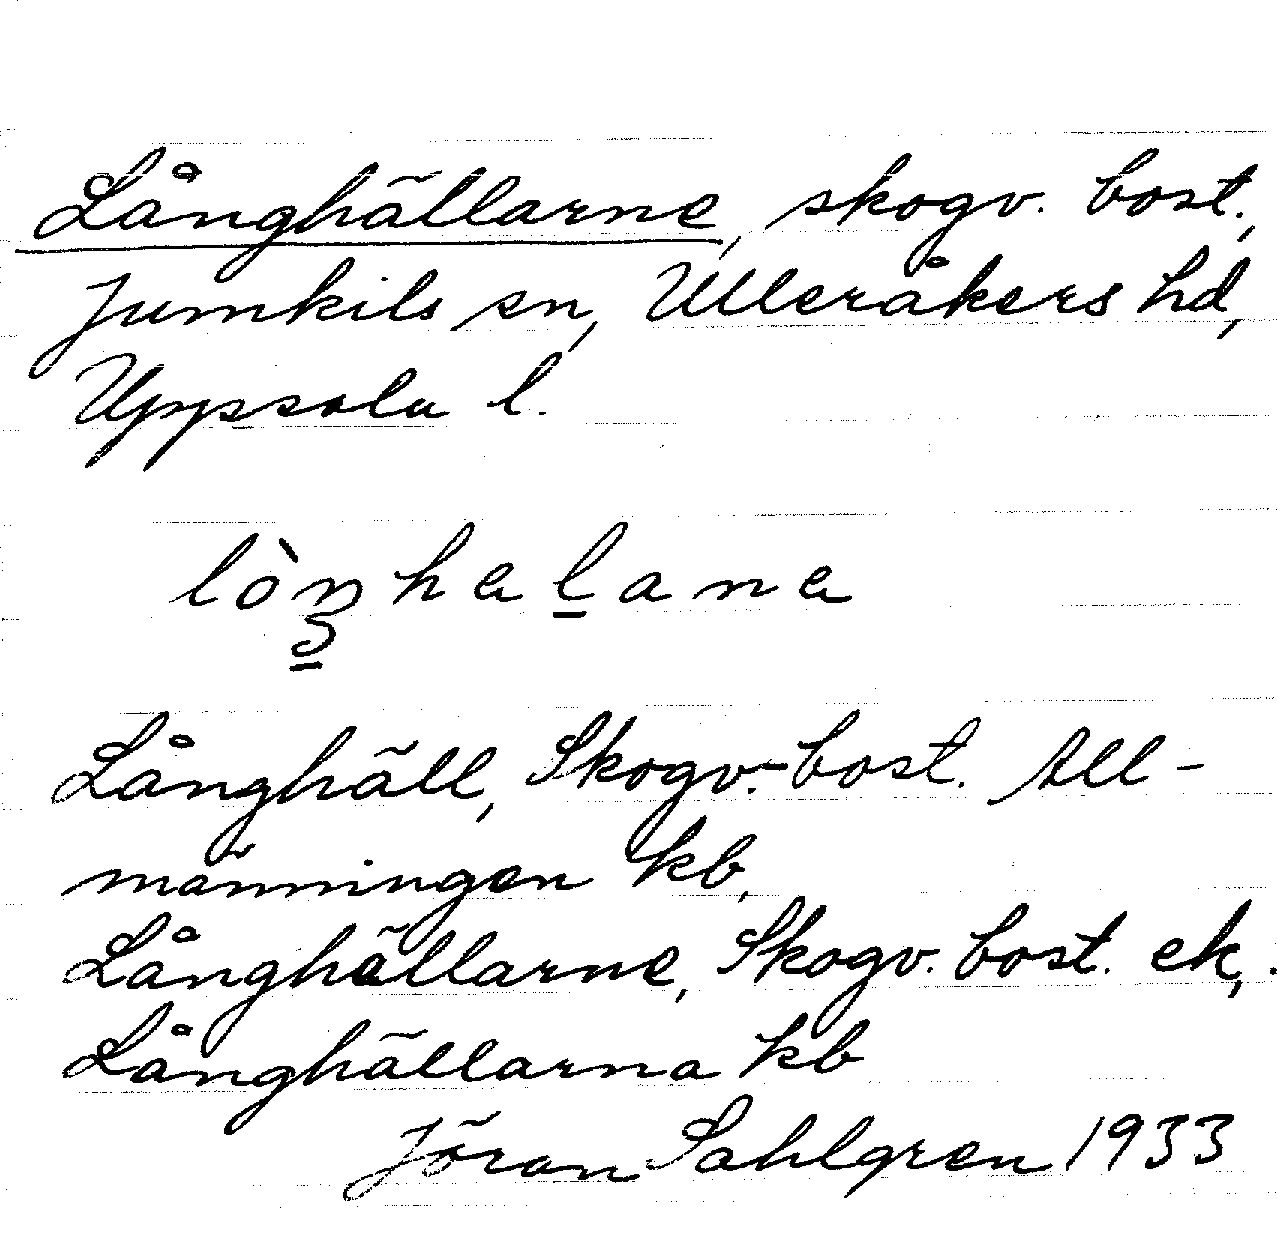 Långhällarne, skogv. bost.,
Jumkils sn, Ulleråkers hd,
Uppsala l.
lòŋhaḻana
Långhäll, Skogv.-bost. All-
männingen kb,
Långhällarne, Skogv. bost. ek,
Långhällarna kb
Jöran Sahlgren 1933